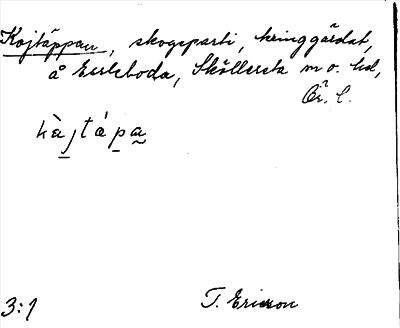 Kojtäppan, skogsparti, kringgärdat,
å Esseboda, Sköllersta sn o. hd,
Ör. l.
kà̱jtáp̱a̰
3:1
T. Ericson